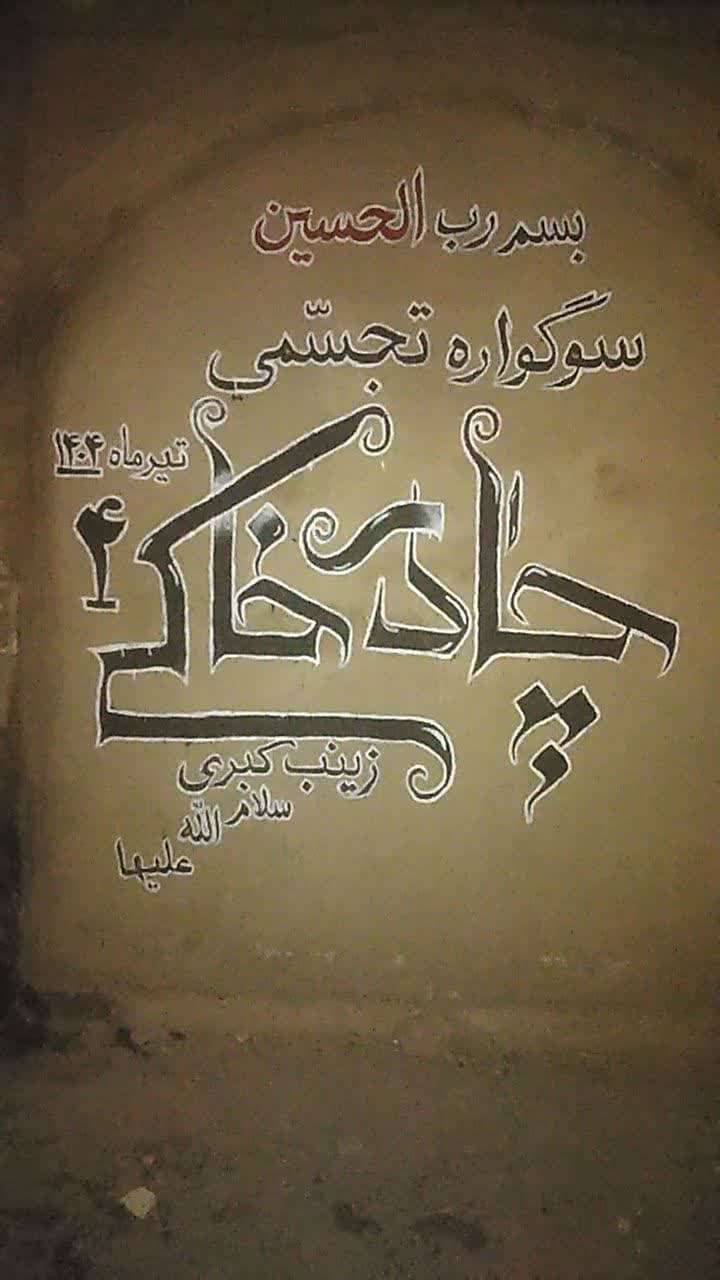 بسم رب الحسین
سوگواره تجسّمي
تیرماه ۱۴۰۴
چادر خاکے ۴
زینب کبری
سلام الله
علیها